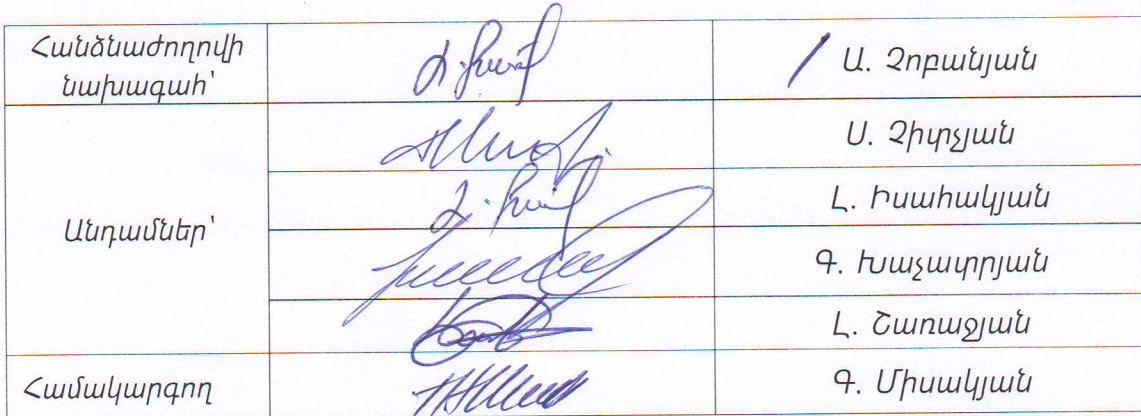 Հանձնաժողովի
նախագահ՝
/ Ա. Չոբանյան
Ս. Չիտչյան
Անդամներ՝
Լ. Իսահակյան
Գ. Խաչատրյան
Լ. Շառաջյան
Համակարգող
Գ. Միսակյան